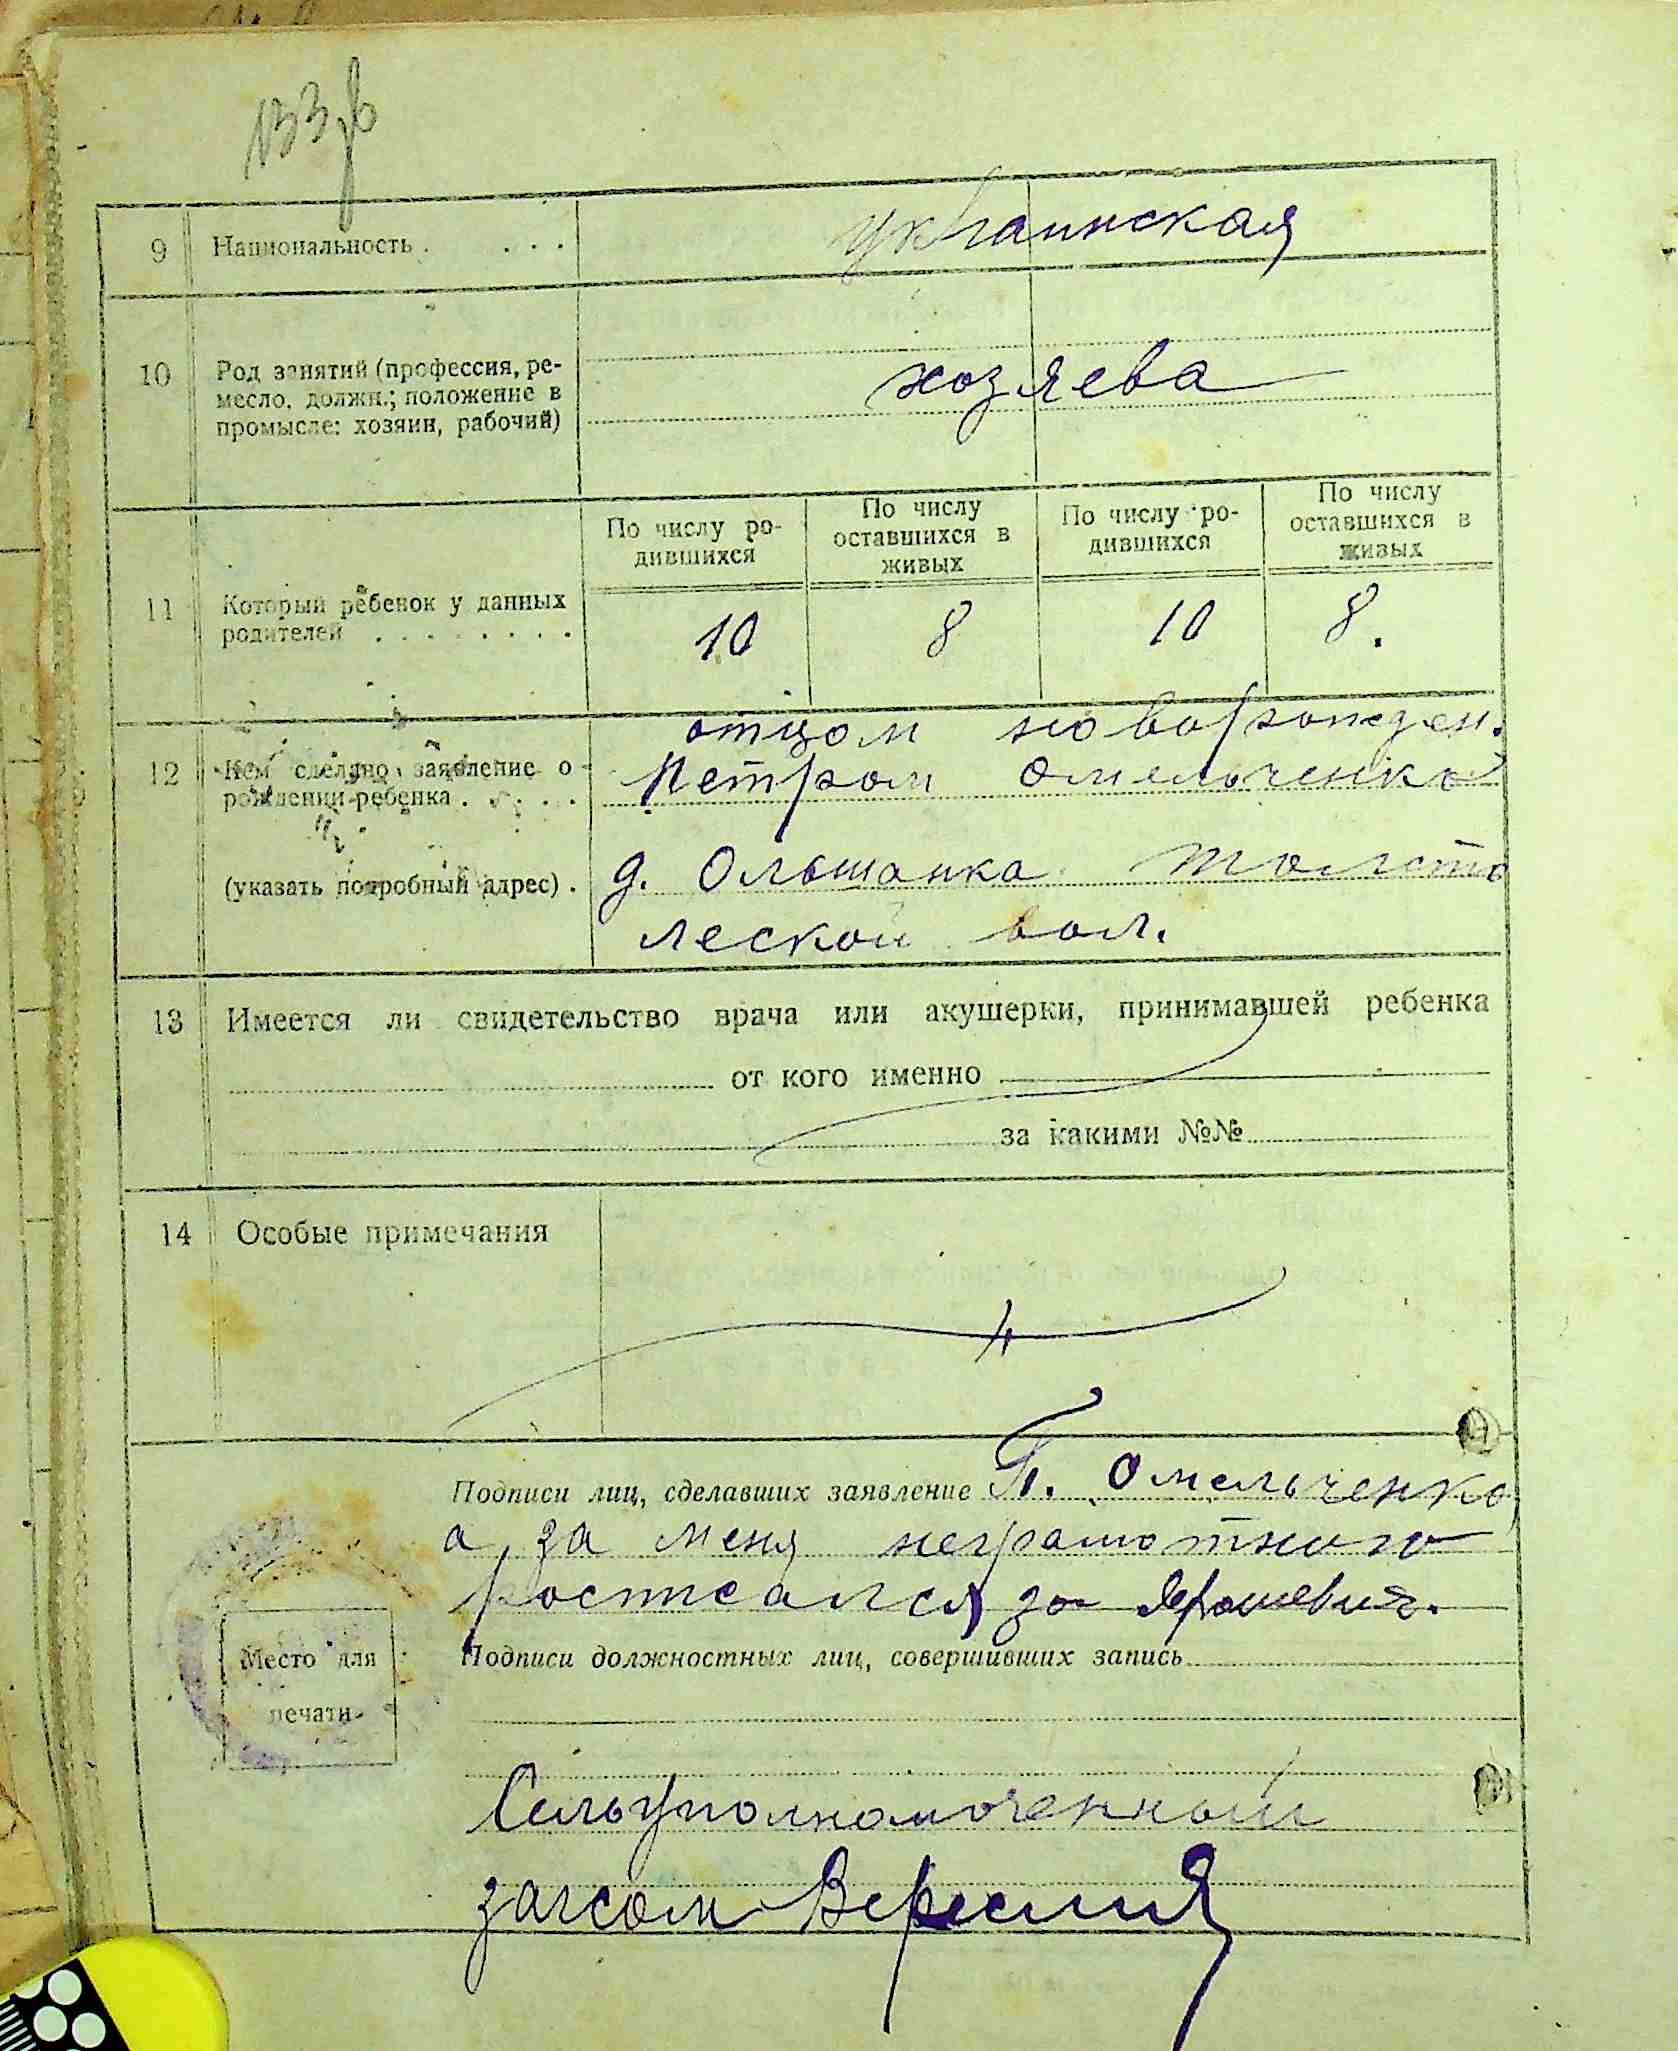 133
9 Национальность . . . . украинская
10 Род занятий (профессия, ре-
месло, должн.; положение в
промысле: хозяин, рабочий)
хозяева
По числу ро-
дившихся
По числу
оставшихся в
живых
По числу ро-
дившихся
По числу
оставшихся в
живых
11 Который ребенок у данных
родителей . . . . . . . .
10 8 10 8.
отцом новорожден.
12 Кем сделано заявление о
рождении ребенка . . . . .
Петром Омельченко
(указать подробный адрес) . д. Ольшанка Толсто
леской вол.
13 Имеется ли свидетельство врача или акушерки, принимавшей ребенка
от кого именно
за какими №№
14 Особые примечания
Подписи лиц, сделавших заявление П. Омельченко
а за меня неграмотного
росписался за
Подписи должностных лиц, совершивших запись
Место для
печати
Сельуполномоченный
загсом